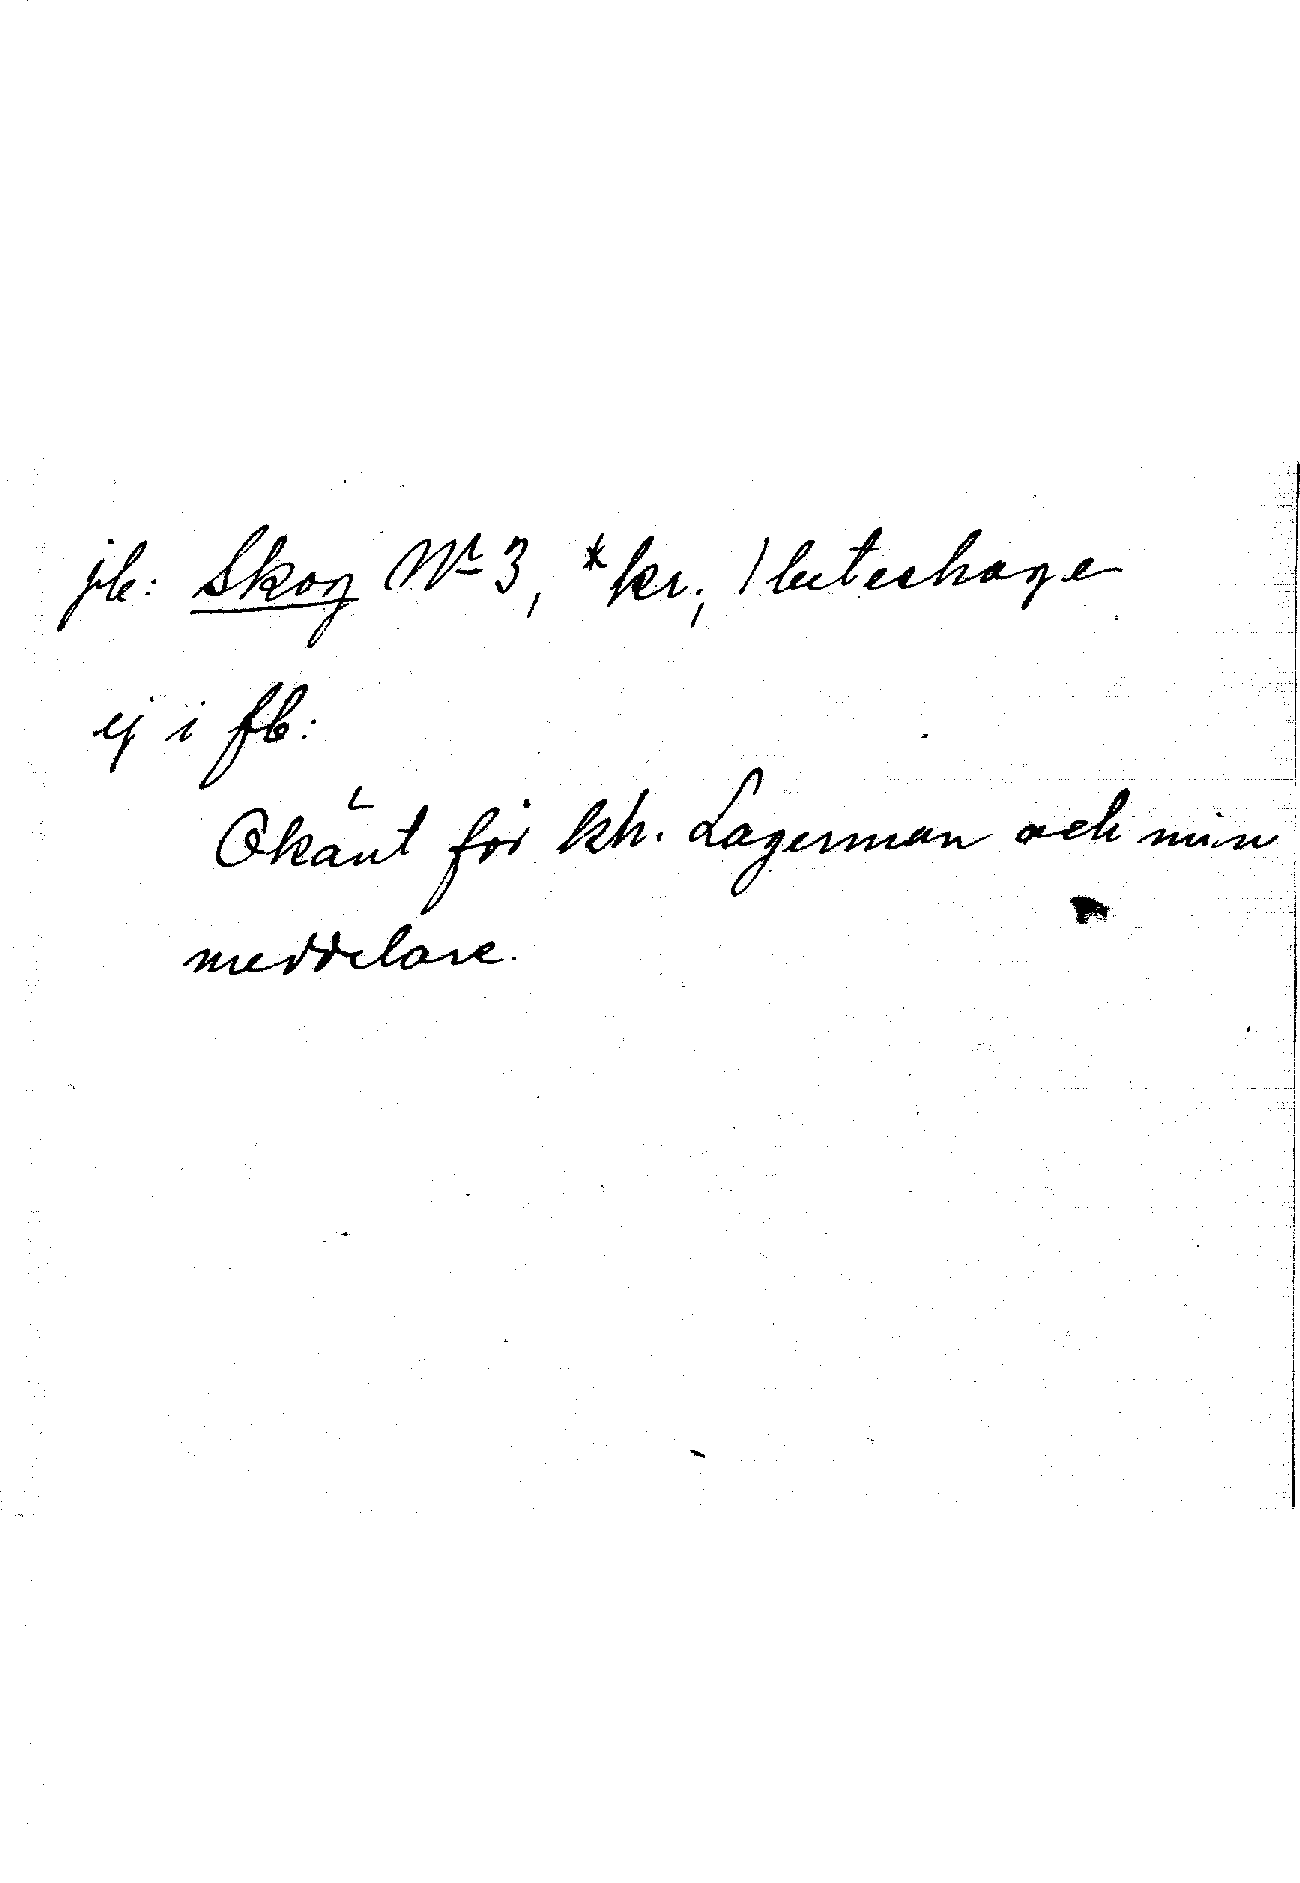 jb: Skog Nr 3, *kr; 1 beteshage
ej i fb:
Okänt för kh. Lagerman och min
meddelare.